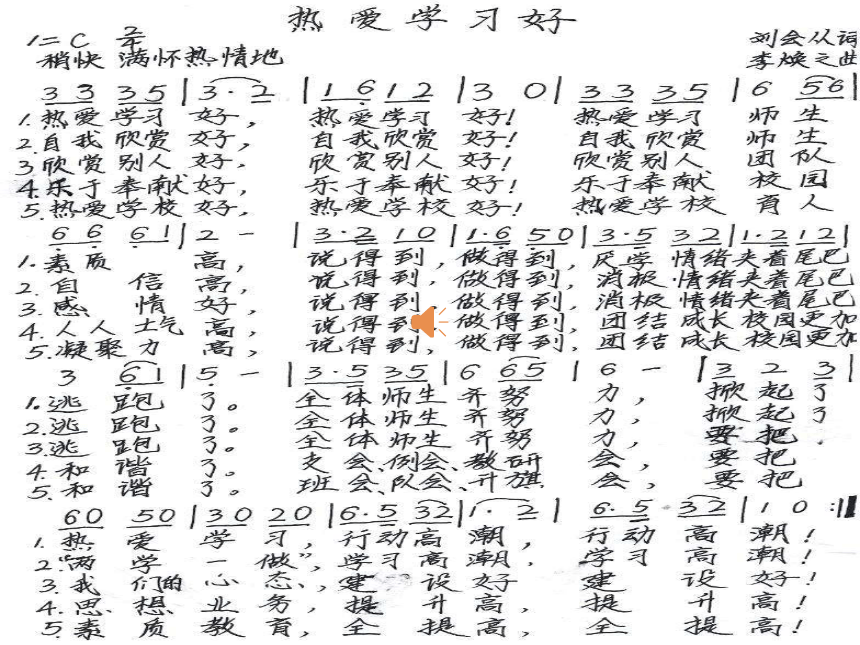 热爱学习好
1=C 2/4
刘会从词
稍快 满怀热情地
李焕之曲
3 3 3 5 | 3· 2 | 1 6 1 2 | 3 0 | 3 3 3 5 | 6 5 6 |
1.热爱学习 好, 热爱学习 好! 热爱学习 师生
2.自我欣赏 好, 自我欣赏 好! 自我欣赏 师生
3.欣赏别人 好, 欣赏别人 好! 欣赏别人 团队
4.乐于奉献 好, 乐于奉献 好! 乐于奉献 校园
5.热爱学校 好, 热爱学校 好! 热爱学校 育人
6 6 6 1 | 2 - | 3·2 1 0 | 1·6 5 0 | 3·5 3 2 | 1·2 1 2 |
1.素质 高, 说得到, 做得到, 厌学 情绪夹着尾巴
2.自 信 高, 说得到, 做得到, 消极 情绪夹着尾巴
3.感 情 好, 说得到, 做得到, 消极 情绪夹着尾巴
4.人人 士气 高, 说得到, 做得到, 团结 成长 校园更加
5.凝聚 力 高, 说得到, 做得到, 团结 成长 校园更加
3 6 1 | 5 - | 3·5 3 5 | 6 6 5 | 6 - | 3 2 3 |
1.逃 跑 了。 全体师生 齐努 力, 掀起了
2.逃 跑 了。 全体师生 齐努 力, 掀起了
3.逃 跑 了。 全体师生 齐努 力, 要把
4.和 谐 了。 支会、例会、教研 会, 要把
5.和 谐 了。 班会、队会、升旗 会, 要把
6 0 5 0 | 3 0 2 0 | 6·5 3 2 | 1· 2 | 6·5 3 2 | 1 0 :||
1.热 爱 学 习, 行动高 潮, 行动 高 潮!
2.“两 学 一 做”, 学习高 潮, 学习 高 潮!
3.我 们的 心 态, 建 设 好 建 设 好!
4.思 想 业 务, 提 升 高, 提 升 高!
5.素 质 教 育, 全 提 高, 全 提 高!